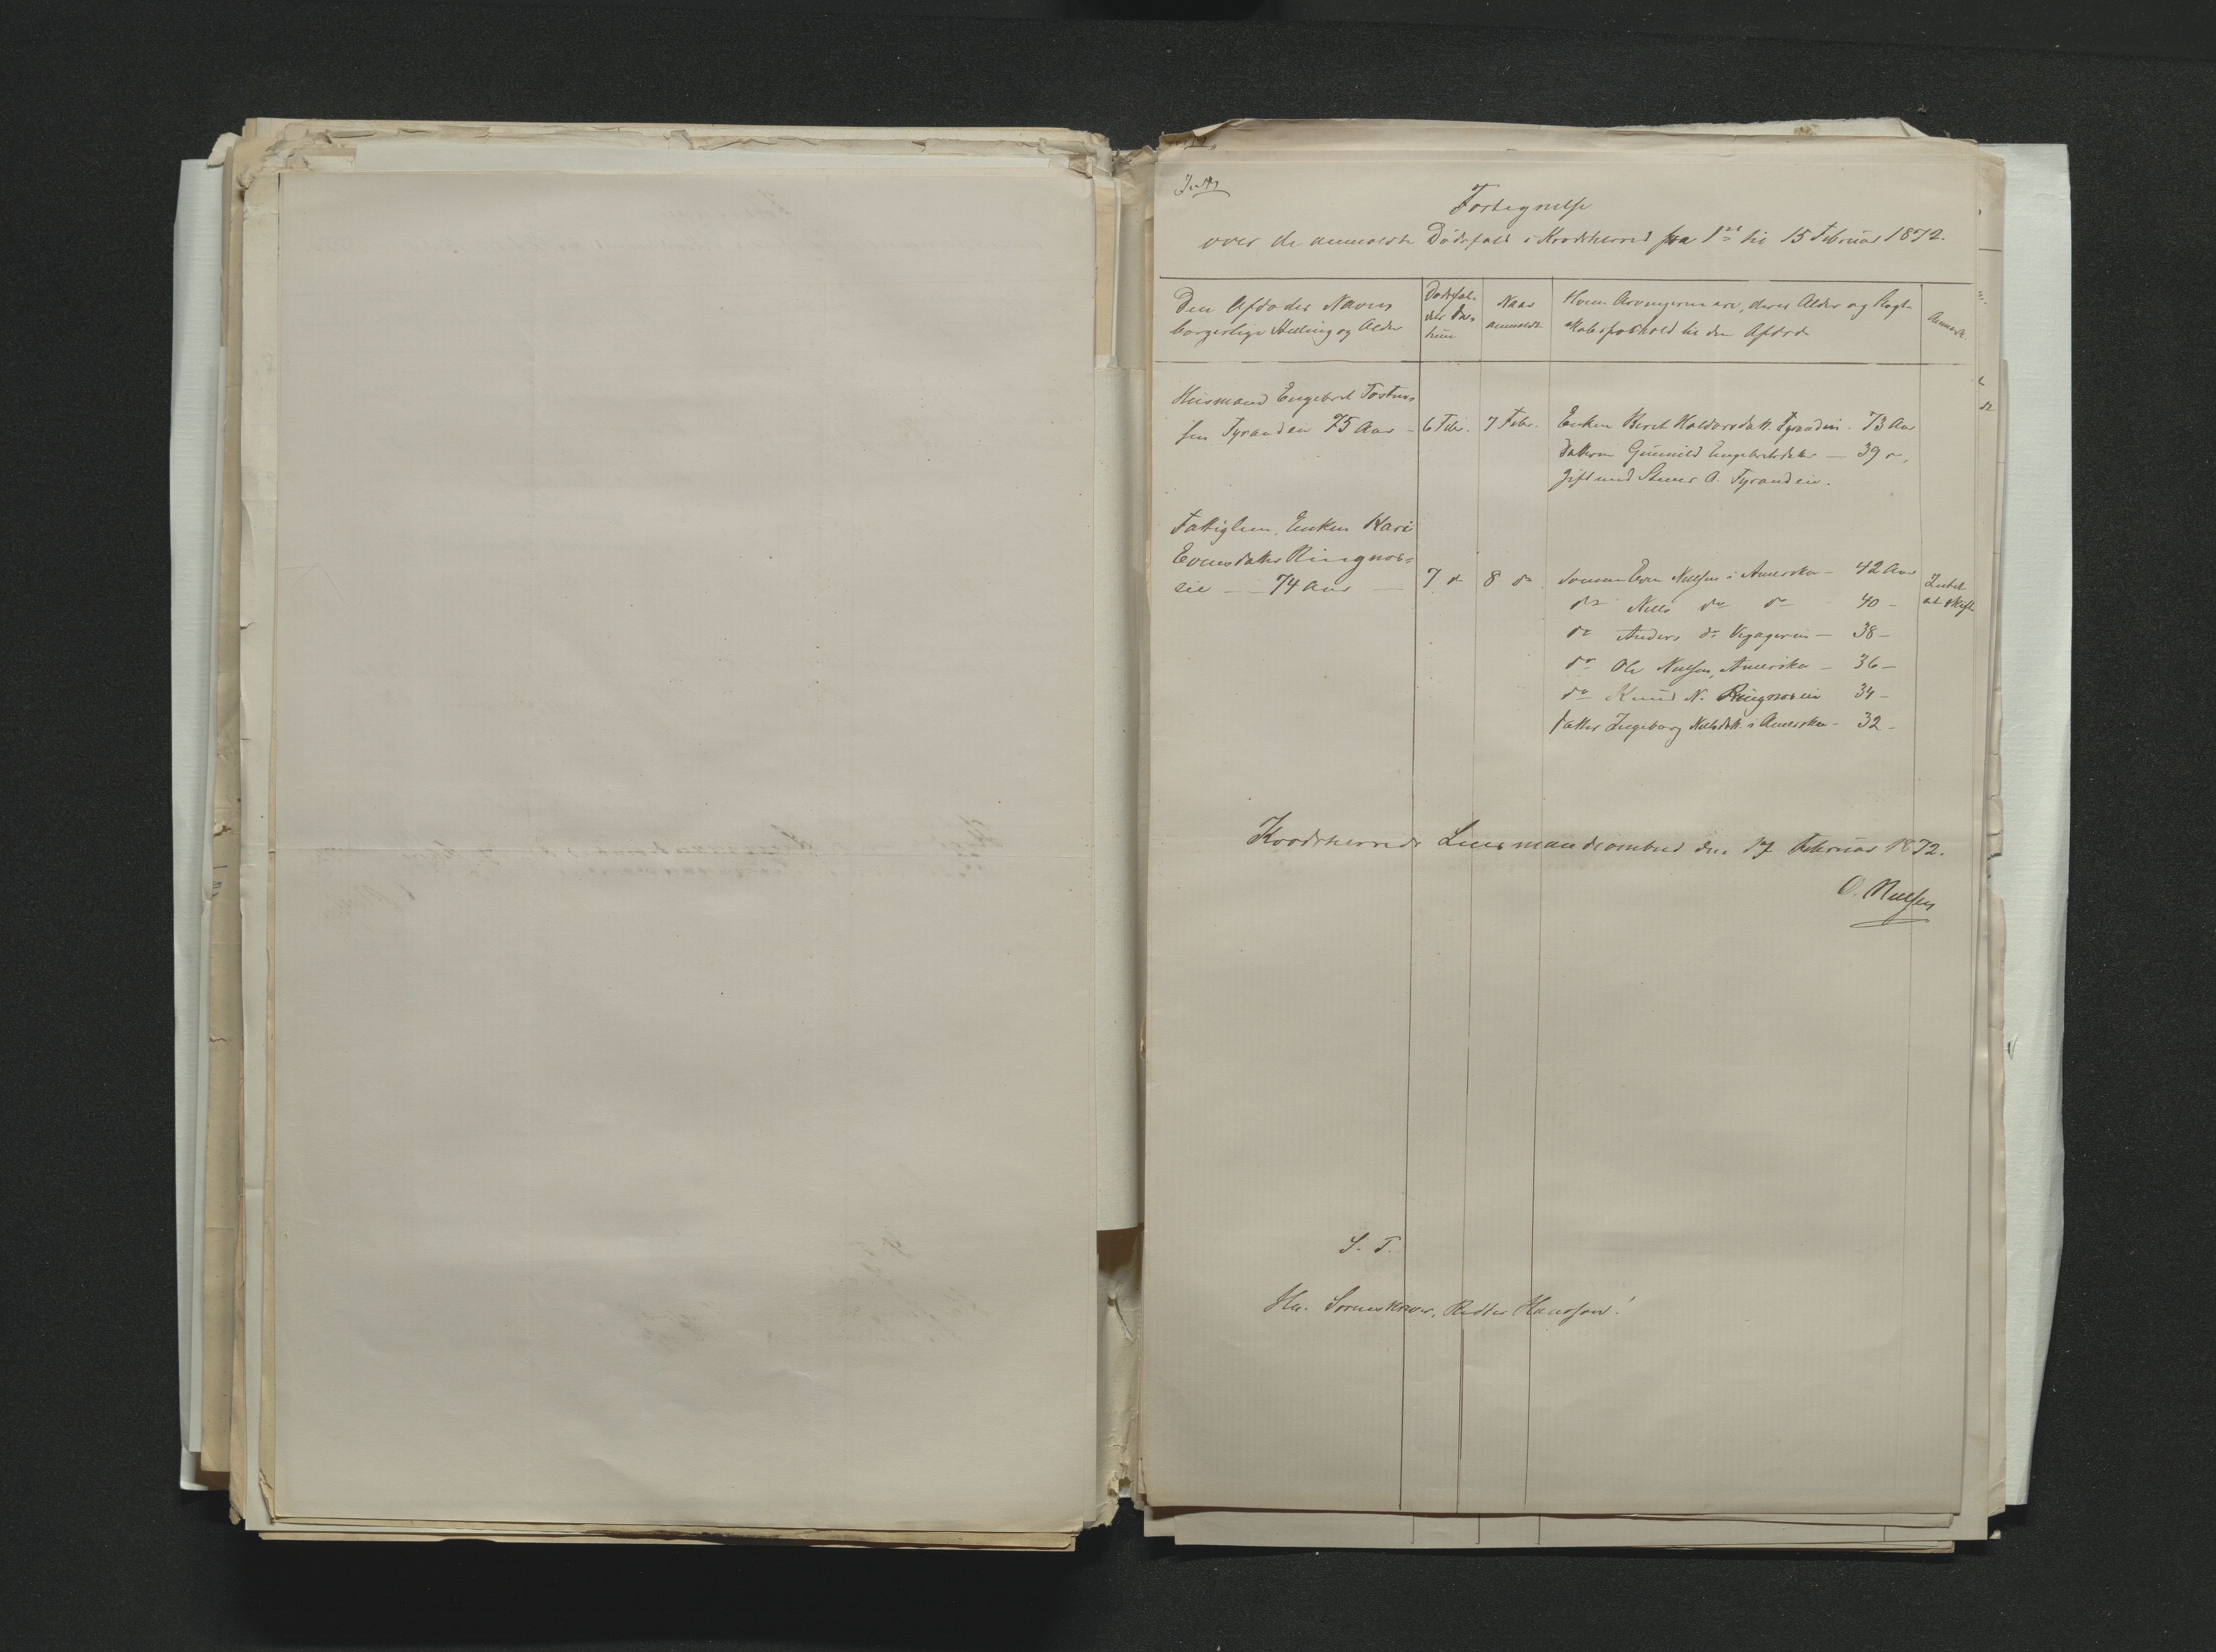 Fortegnelse
over de anmeldte Dödsfald i Krodsherred fra 1ste til 15 Februar 1872.
Den Afdödes Navn
borgerlige Stilling og Alder
Dödsfal-
dets Da-
tum
Naar
anmeldt
Hvem Arvingerne ere, deres Alder og Slægt-
skabsforhold til den Afdöde
Anmærk.
Huusmand Engebret Tostens
sen Tyrandeie 75 Aar - 6 Febr. 7 Febr. Enken Berit Haldorsdatt. Tyrandeie. 73 Aar
Datteren Gunnild Engebretsdatter — 39 "
gift med Stener A. Tyrandeie.
Fattiglem, Enken Kari
Evensdatter Ringnes-
eie — 74 Aar — 7 do 8 do Sönnen Even Nielsen i Amerika — 42 Aar Intet
at skifte
do Niels do do 40 -
do Anders do — 38 -
do Ole Nielsen, Amerika — 36 -
do Knud N. Ringneseie 34 -
Datter Ingeborg Nielsdatt. i Amerika - 32 -
Krodsherreds Lensmandsombud den 17 Februar 1872.
O. Nielsen
S. T.
Hr. Sorenskriver, Ridder Hansson!